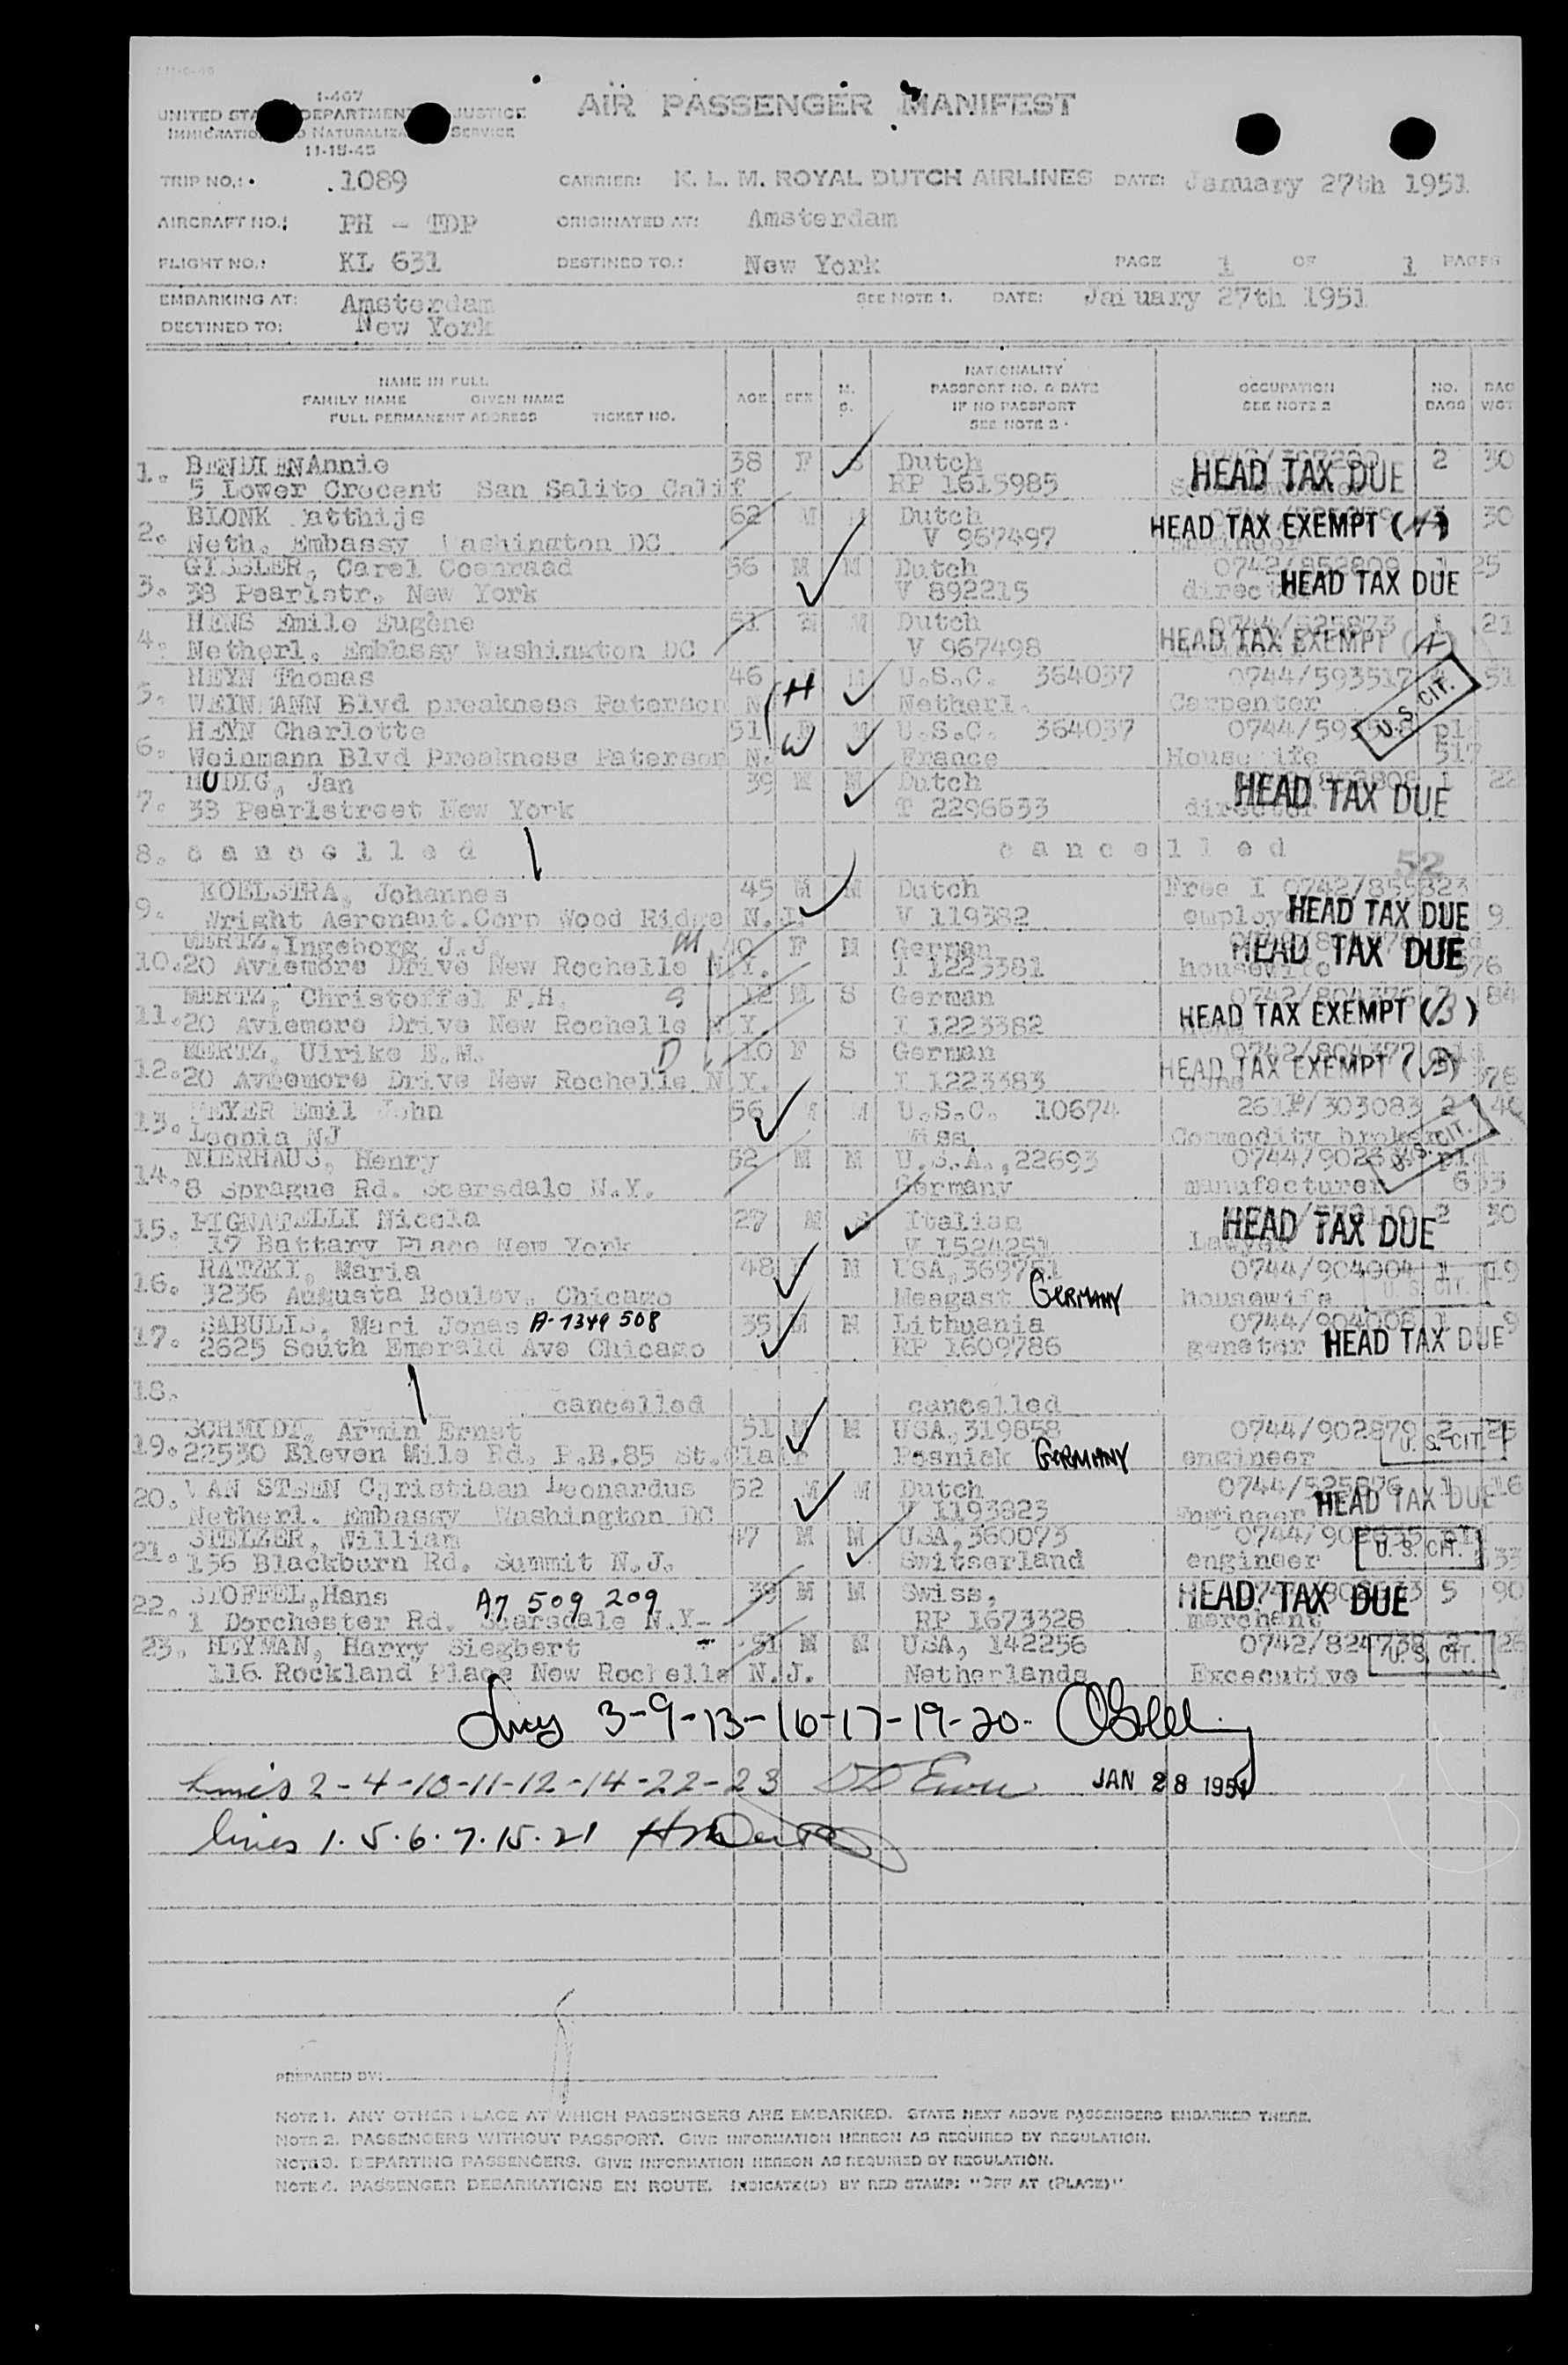 I-407
UNITED STA DEPARTMENT JUSTICE
IMMIGRATIO NATURALIZA SERVICE
11-15-45
AIR PASSENGER MANIFEST
TRIP NO.: 1089 CARRIER: K. L. M. ROYAL DUTCH AIRLINES DATE: January 27th 1951
AIRCRAFT NO.: PH - TDP ORIGINATED AT: Amsterdam
FLIGHT NO.: KL 631 DESTINED TO.: New York PAGE 1 OF 1 PAGES
EMBARKING AT: Amsterdam SEE NOTE 1. DATE: January 27th 1951
DESTINED TO: New York
NAME IN FULL
FAMILY NAME GIVEN NAME
FULL PERMANENT ADDRESS TICKET NO.
AGE SEX M. S.
NATIONALITY
PASSPORT NO. & DATE
IF NO PASSPORT
SEE NOTE 2.
OCCUPATION
SEE NOTE 2
NO. BAGS
BAG WGT
1. BENDIEN Annie 38 F S Dutch HEAD TAX DUE 2 30
5 Lower Crocent San Salito Calif RP 1615985
2. BLONK atthijs 62 M M Dutch HEAD TAX EXEMPT 30
Neth. Embassy Washington DC V 967497
3. GISSLER, Carel Coenraad 56 M M Dutch 0742/852809 1 25
38 Pearlstr. New York V 892215 direct HEAD TAX DUE
4. HENS Emile Eugène 51 M M Dutch 0744/525873 1 21
Netherl. Embassy Washington DC V 967498 HEAD TAX EXEMPT (N)
5. HEYN Thomas 46 H M U.S.C. 364037 0744/593517 51
WEINMANN Blvd preakness Paterson N Netherl. Carpenter U.S. CIT.
6. HEYN Charlotte 51 F M U.S.C. 364037 0744/593518 pld
Weinmann Blvd Preakness Paterson N. W France Housewife 517
7. HUDIG, Jan 39 M M Dutch 1 22
38 Pearlstreet New York T 2296633 director HEAD TAX DUE
8. c a n c e l l e d c a n c e l l e d
52
9. KOELSTRA, Johannes 45 M M Dutch Free I 0742/855823
Wright Aeronaut.Corp Wood Ridge N.J. V 119382 employ HEAD TAX DUE 9
10. MERTZ, Ingeborg J.J. M 40 F M German HEAD TAX DUE
20 Aviemore Drive New Rochelle N.Y. I 1223381 housewife 376
11. MERTZ, Christoffel F.H. S 12 M S German 0742/804376 2 84
20 Aviemore Drive New Rochelle N.Y. I 1223382 HEAD TAX EXEMPT (B)
12. MERTZ, Ulrike E.M. D 10 F S German 0742/804377
20 Aviemore Drive New Rochelle N.Y. I 1223383 HEAD TAX EXEMPT (B) 376
13. MEYER Emil John 56 M M U.S.C. 10674 303083 2 40
Leonia NJ Commodity broker U.S. CIT.
14. NIERHAUS, Henry 52 M M U.S.A., 22693 pld
8 Sprague Rd. Scarsdale N.Y. Germany manufacturer U.S. CIT. 633
15. PIGNATELLI Nicola 27 M S Italian HEAD TAX DUE 2 30
17 Battary Place New York V 1524251 Lawyer
16. RATZKI, Maria 48 M USA, 369751 0744/904004 1 19
3236 Augusta Boulev. Chicago Meegast GERMANY housewife U. S. CIT.
17. SABULIS, Mari Jonas A-7349 508 35 M M Lithuania 0744/904008 1 9
2625 South Emerald Ave Chicago RP 1609786 HEAD TAX DUE
18. cancelled cancelled
19. SCHMIDT, Armin Ernst 51 M M USA, 319858 0744/902879 2 25
22530 Eleven Mile Rd. P.B.85 St.Clair Posnick GERMANY engineer U. S. CIT.
20. VAN STEEN Cgristiaan Leonardus 52 M M Dutch 0744/525876 1 16
Netherl. Embassy Washington DC V 1193823 Engineer HEAD TAX DUE
21. STELZER, William 47 M M USA, 360073 0744/902635 pl
136 Blackburn Rd. Summit N.J. Switserland engineer U. S. CIT. 633
22. STOFFEL,Hans A7 509 209 39 M M Swiss, HEAD TAX DUE 5 90
1 Dorchester Rd. Scarsdale N.Y- RP 1673328 merchant
23. HEYMAN, Harry Siegbert 51 M M USA, 142256 0742/824738 2 26
116 Rockland Place New Rochelle N.J. Netherlands Excecutive U. S. CIT.
Lines 3-9-13-16-17-19-20-
lines 2-4-10-11-12-14-22-23 JAN 28 1951
lines 1.5.6.7.15.21
PREPARED BY:
NOTE 1. ANY OTHER PLACE AT WHICH PASSENGERS ARE EMBARKED. STATE NEXT ABOVE PASSENGERS EMBARKED THERE.
NOTE 2. PASSENGERS WITHOUT PASSPORT. GIVE INFORMATION HEREON AS REQUIRED BY REGULATION.
NOTE 3. DEPARTING PASSENGERS. GIVE INFORMATION HEREON AS REQUIRED BY REGULATION.
NOTE 4. PASSENGER DEBARKATIONS EN ROUTE. INDICATE(D) BY RED STAMP: "OFF AT (PLACE)"